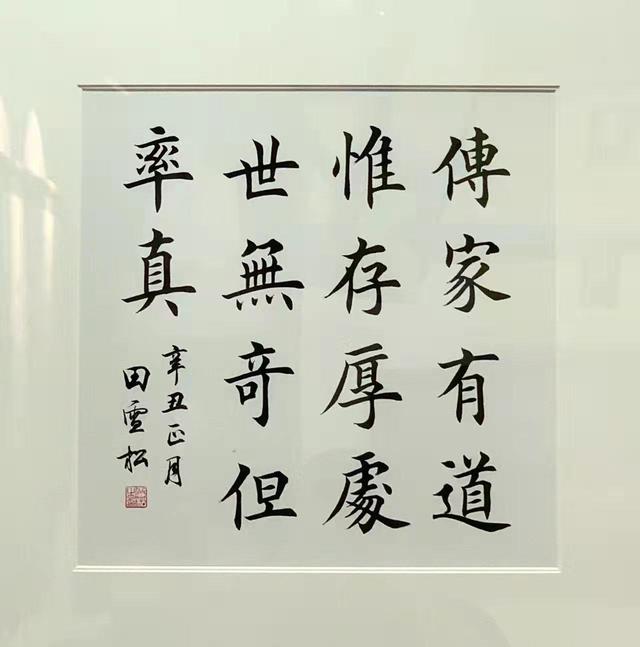 傳家有道
惟存厚處
世無奇但
率真
辛丑正月
田雪松